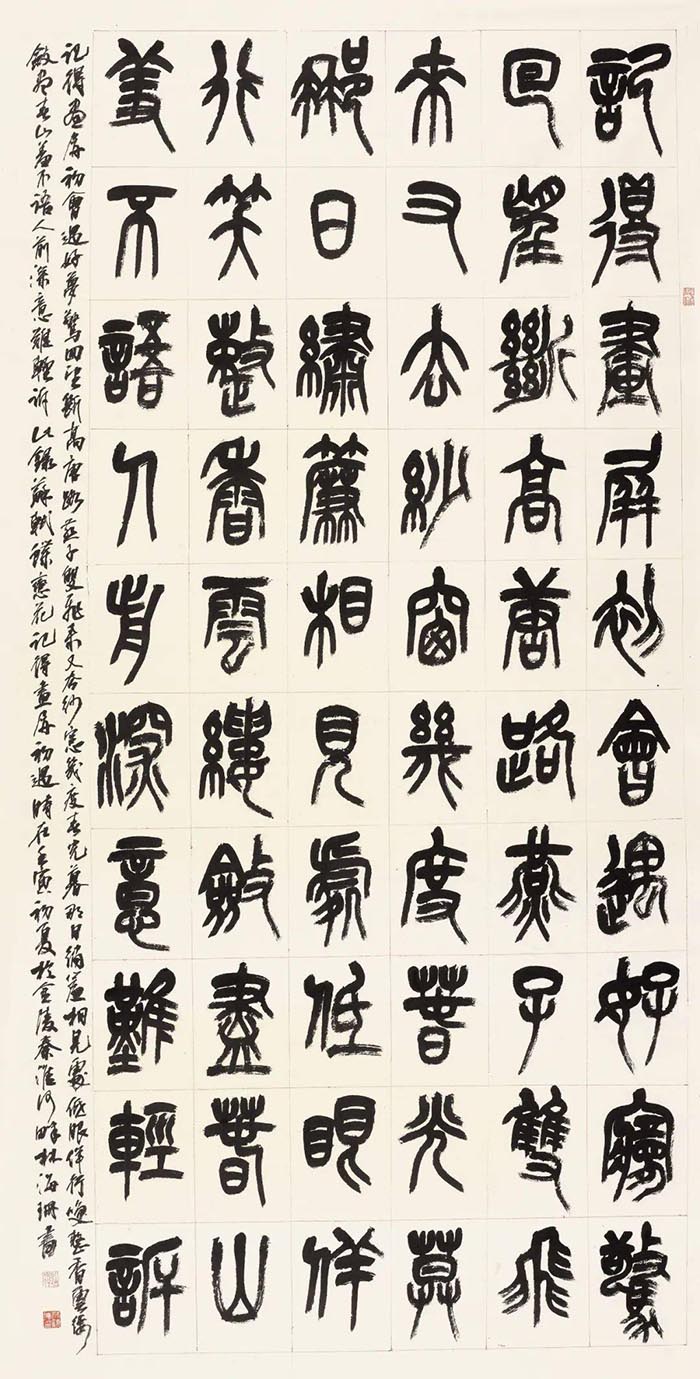 記得畫屏初會遇好夢驚
回望斷高唐路燕子雙飛
來又去紗窗幾度春光莫
那日繡簾相見處低眼佯
行笑整香雲縷斂盡春山
羞不語人前深意難輕訴
記得畫屏初會遇好夢驚回望斷高唐路燕子雙飛來又去紗窓幾度春光暮那日繡簾相見處低眼佯行咲整香雲縷
斂盡春山羞不語人前深意難輕訴此錄蘇軾蝶戀花記得畫屏初遇時在壬寅初夏於金陵秦淮河畔林海珊書